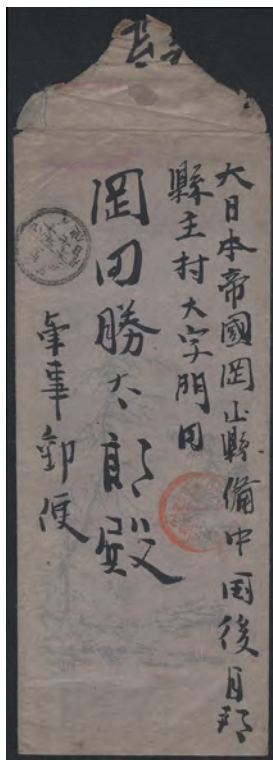 大日本帝國岡山縣備中国後月郡
縣主村大字門田
岡田勝太郎殿
軍事郵便